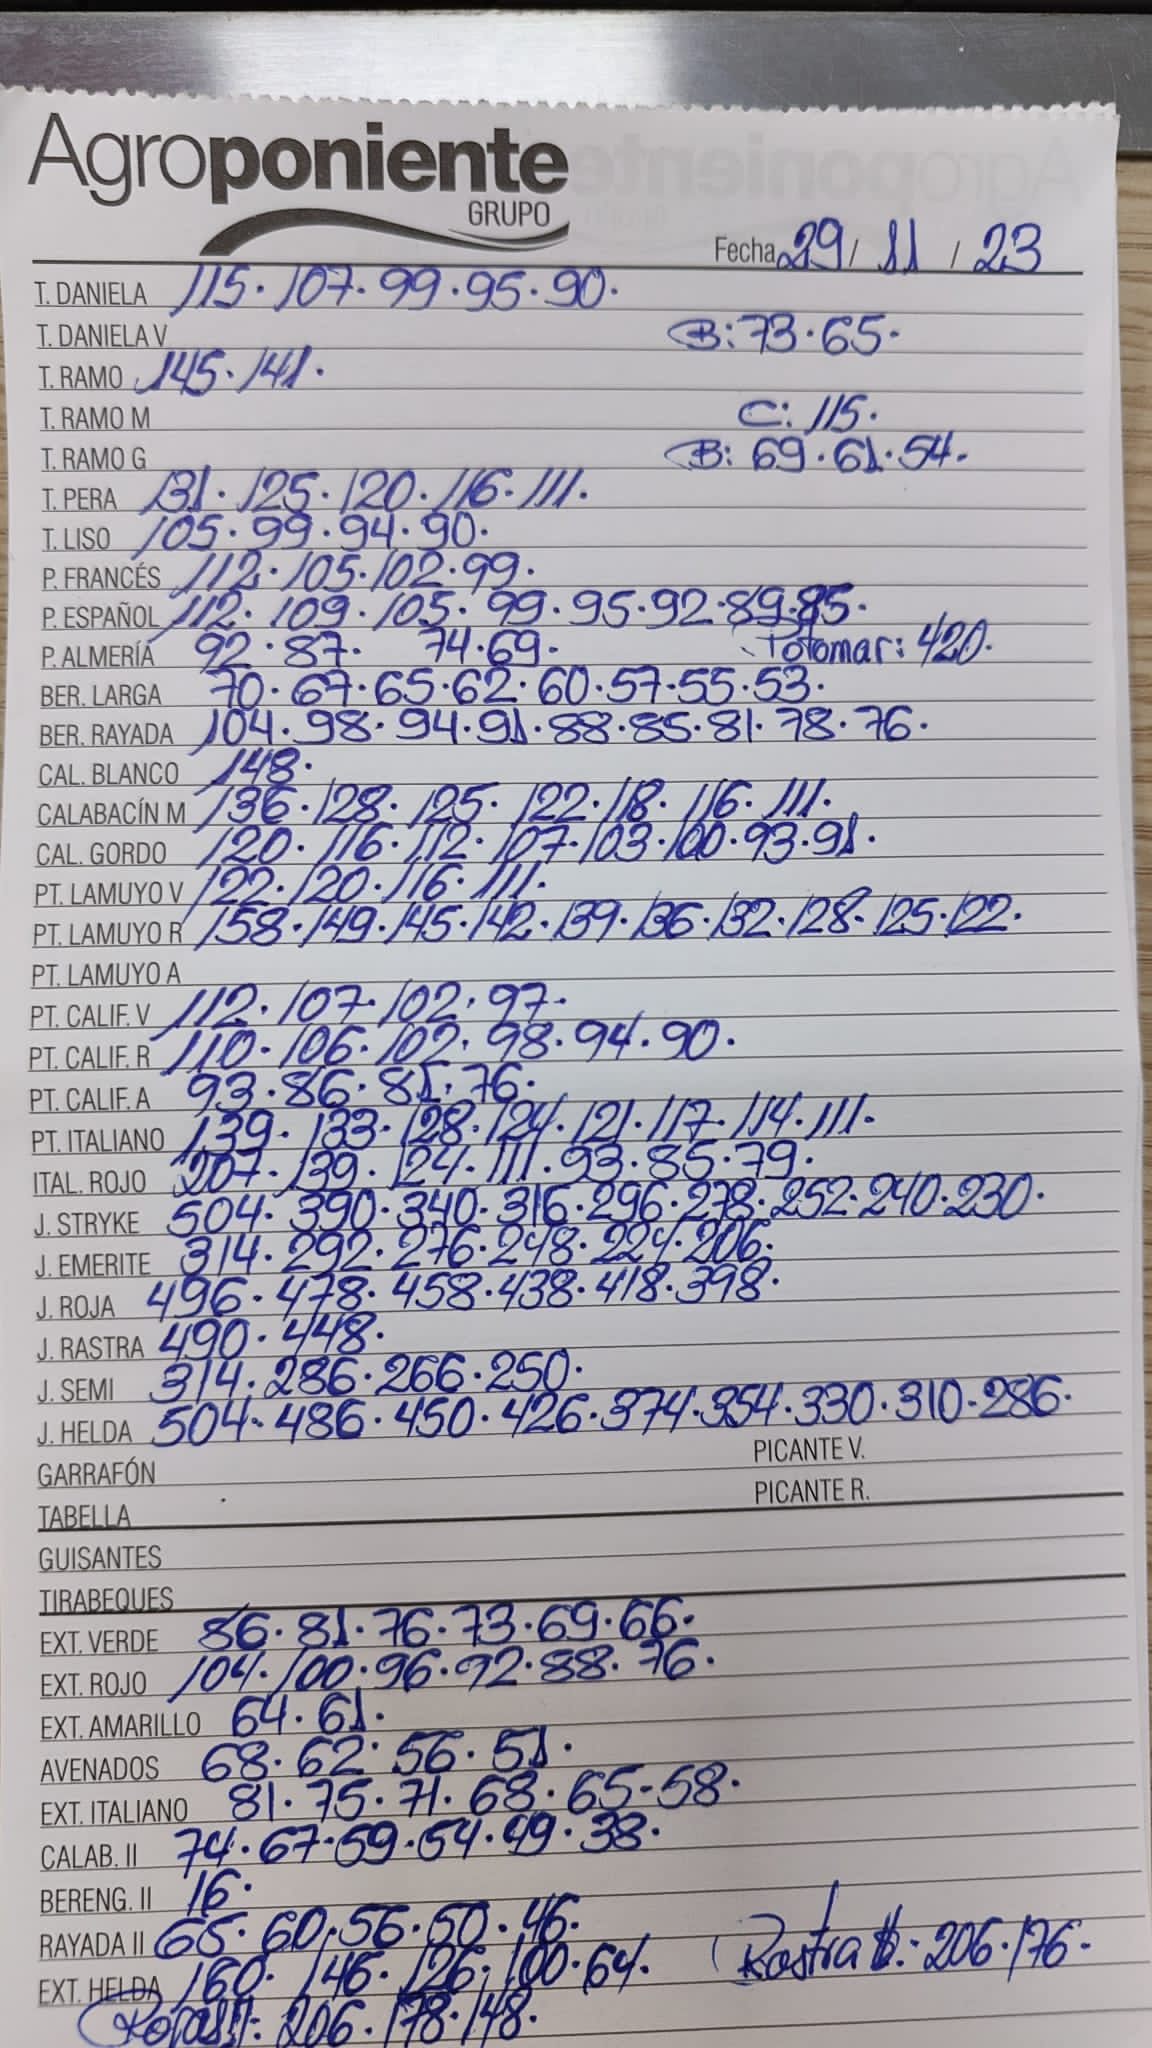 Agroponiente
GRUPO
Fecha 29 / 11 / 23
T. DANIELA 115. 107. 99. 95. 90.
T. DANIELA V B: 73. 65.
T. RAMO 145. 141.
T. RAMO M C: 115.
T. RAMO G B: 69. 61. 54.
T. PERA 131. 125. 120. 116. 111.
T. LISO 105. 99. 94. 90.
P. FRANCÉS 112. 105. 102. 99.
P. ESPAÑOL 112. 109. 105. 99. 95. 92. 89. 85.
P. ALMERÍA 92. 87. 74. 69. Totomar: 420.
BER. LARGA 70. 67. 65. 62. 60. 57. 55. 53.
BER. RAYADA 104. 98. 94. 91. 88. 85. 81. 78. 76.
CAL. BLANCO 148.
CALABACÍN M 136. 128. 125. 122. 118. 116. 111.
CAL. GORDO 120. 116. 112. 107. 103. 100. 93. 91.
PT. LAMUYO V 122. 120. 116. 111.
PT. LAMUYO R 158. 149. 145. 142. 139. 136. 132. 128. 125. 122.
PT. LAMUYO A
PT. CALIF. V 112. 107. 102. 97.
PT. CALIF. R 110. 106. 102. 98. 94. 90.
PT. CALIF. A 93. 86. 81. 76.
PT. ITALIANO 139. 133. 128. 124. 121. 117. 114. 111.
ITAL. ROJO 207. 139. 124. 111. 93. 85. 79.
J. STRYKE 504. 390. 340. 316. 296. 278. 252. 240. 230.
J. EMERITE 314. 292. 276. 248. 224. 206.
J. ROJA 496. 478. 458. 438. 418. 398.
J. RASTRA 490. 448.
J. SEMI 314. 286. 266. 250.
J. HELDA 504. 486. 450. 426. 374. 354. 330. 310. 286.
GARRAFÓN PICANTE V.
TABELLA PICANTE R.
GUISANTES
TIRABEQUES
EXT. VERDE 86. 81. 76. 73. 69. 66.
EXT. ROJO 104. 100. 96. 92. 88. 76.
EXT. AMARILLO 64. 61.
AVENADOS 68. 62. 56. 51.
EXT. ITALIANO 81. 75. 71. 68. 65-58.
CALAB. II 74. 67. 59. 54. 49. 38.
BERENG. II 16.
RAYADA II 65. 60. 56. 50. 46.
EXT. HELDA 160. 146. 126. 100. 64. Rastra : 206. 176.
206. 178. 148.